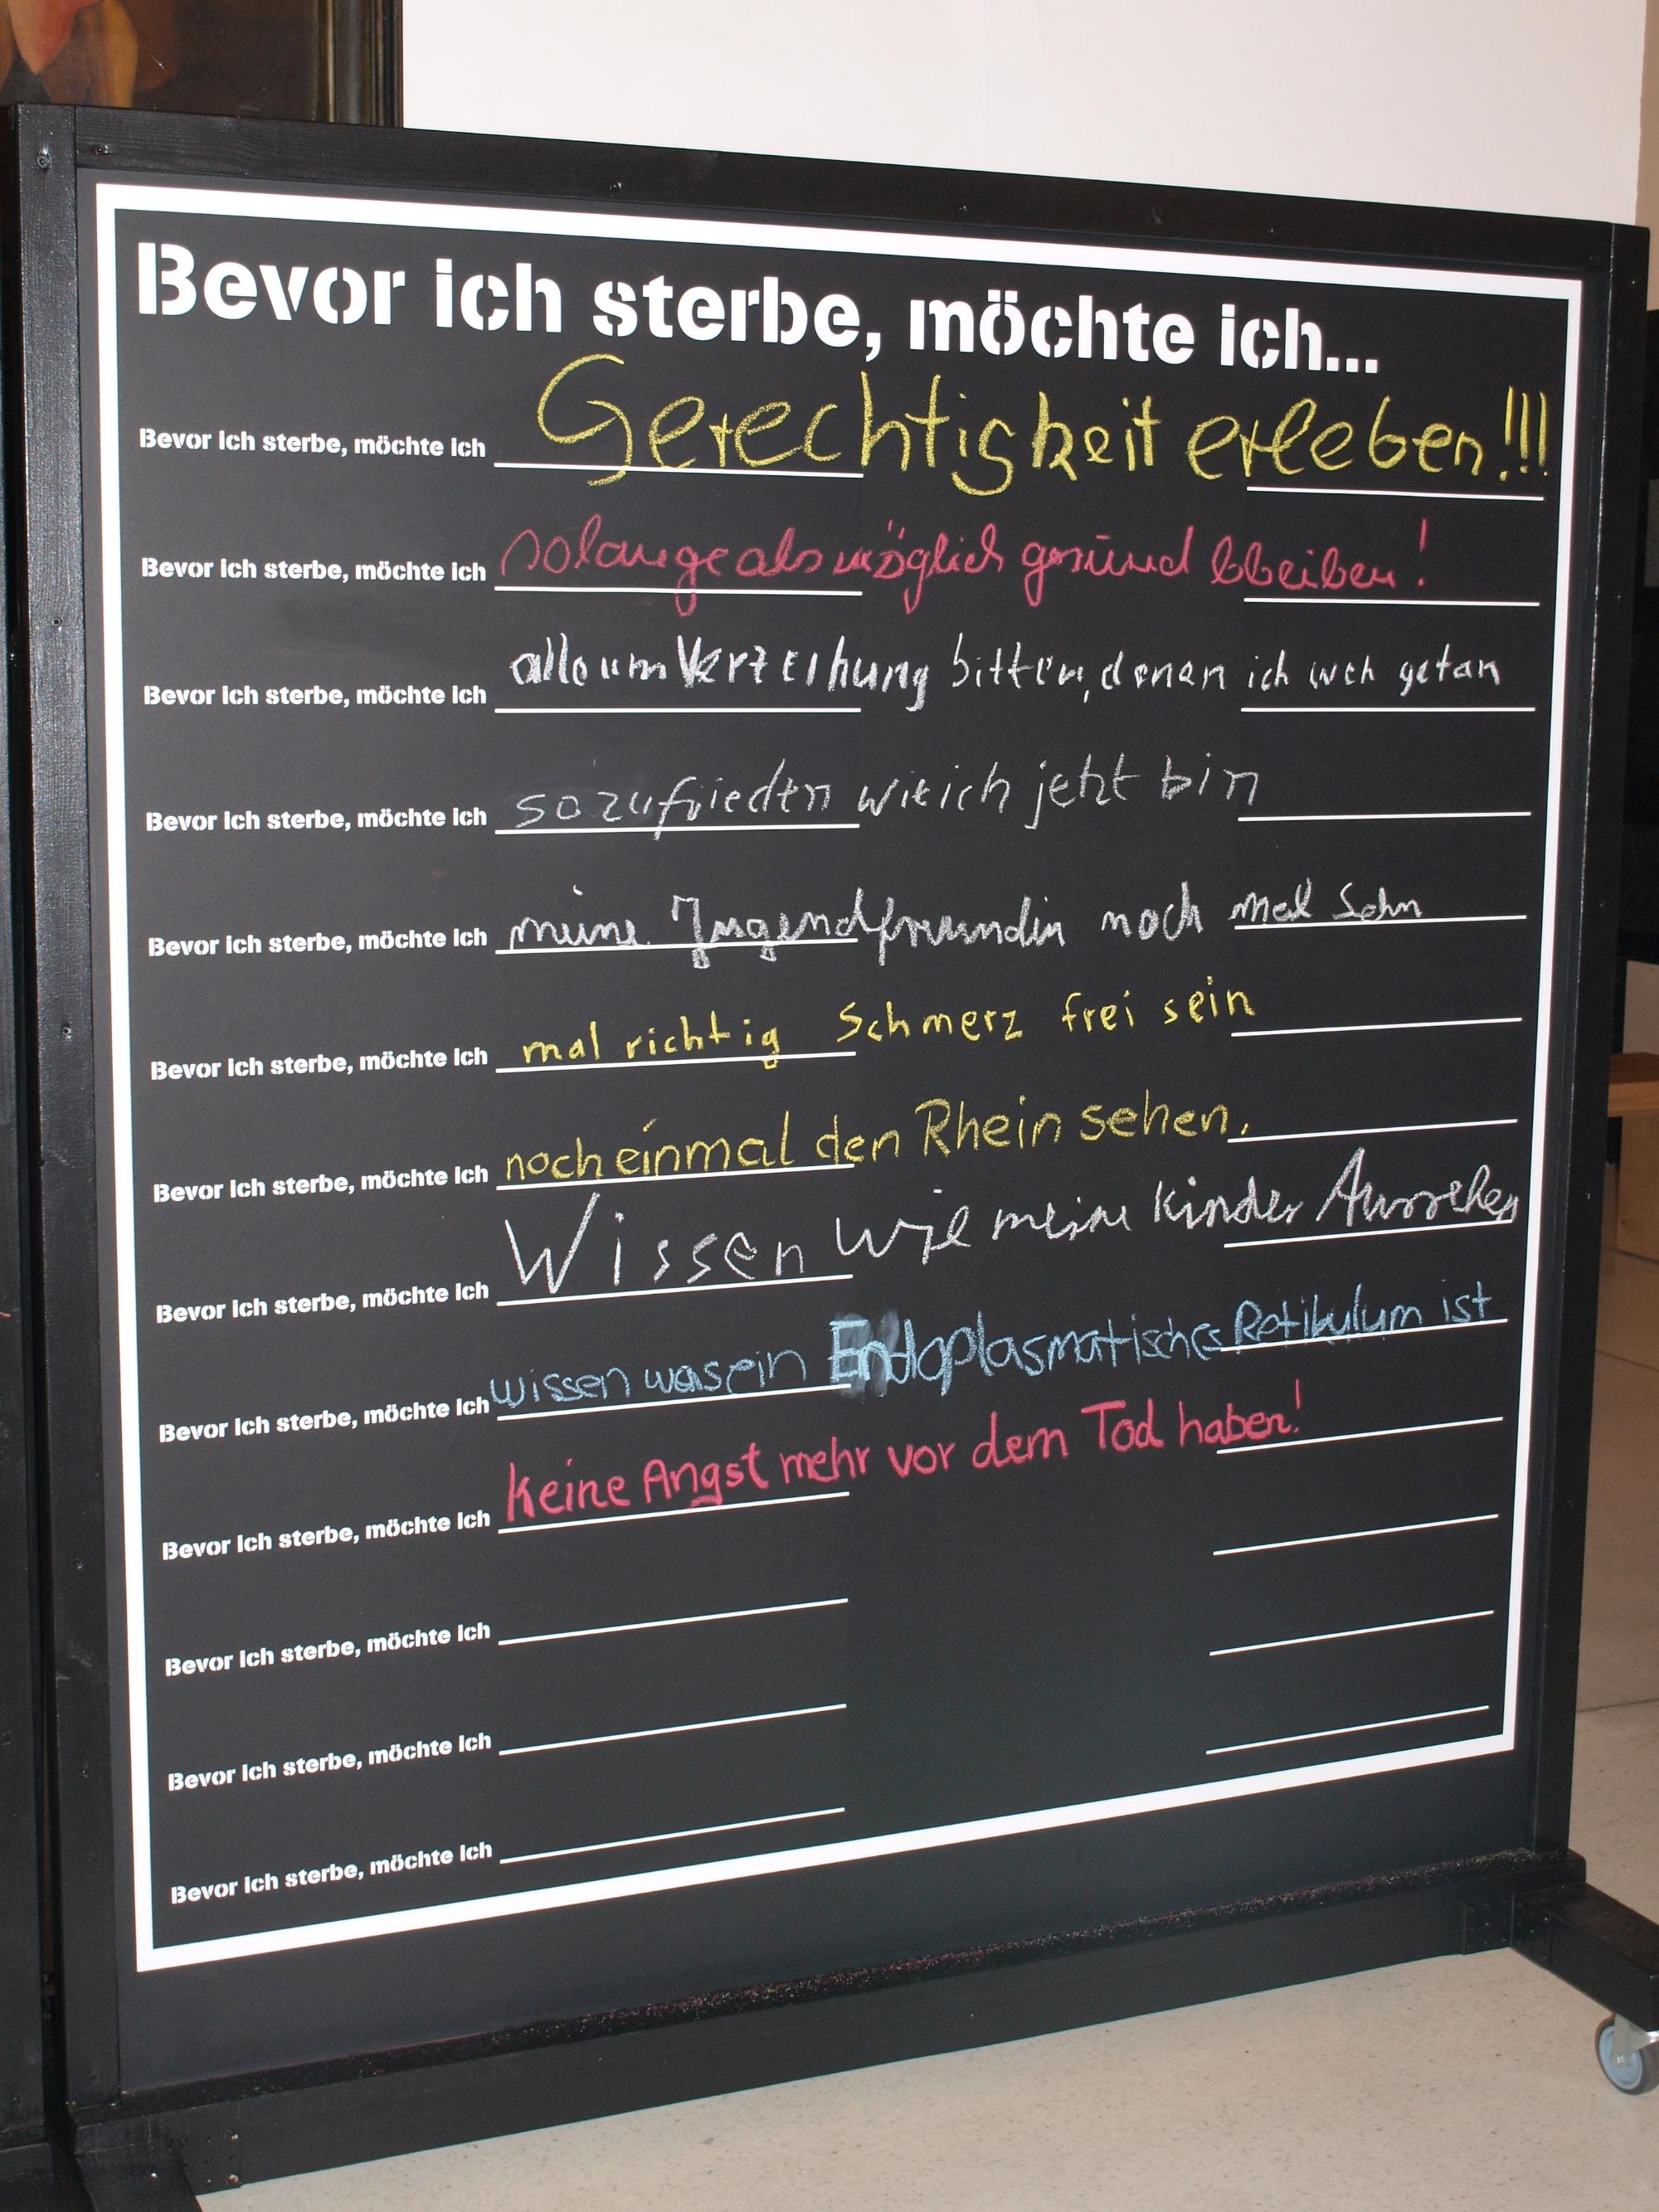 Bevor ich sterbe, möchte ich...
Bevor ich sterbe, möchte ich Gerechtigkeit erleben!!!
Bevor ich sterbe, möchte ich solange als möglich gesund bleiben!
Bevor ich sterbe, möchte ich alle um Verzeihung bitten, denen ich weh getan
Bevor ich sterbe, möchte ich so zufrieden wie ich jetzt bin
Bevor ich sterbe, möchte ich meine Jugendfreundin noch mal Sehn
Bevor ich sterbe, möchte ich mal richtig Schmerz frei sein
Bevor ich sterbe, möchte ich noch einmal den Rhein sehen.
Bevor ich sterbe, möchte ich Wissen wie meine Kinder Aussehen
Bevor ich sterbe, möchte ich wissen was ein Endoplasmatisches Retikulum ist
Bevor ich sterbe, möchte ich keine Angst mehr vor dem Tod haben!
Bevor ich sterbe, möchte ich
Bevor ich sterbe, möchte ich
Bevor ich sterbe, möchte ich